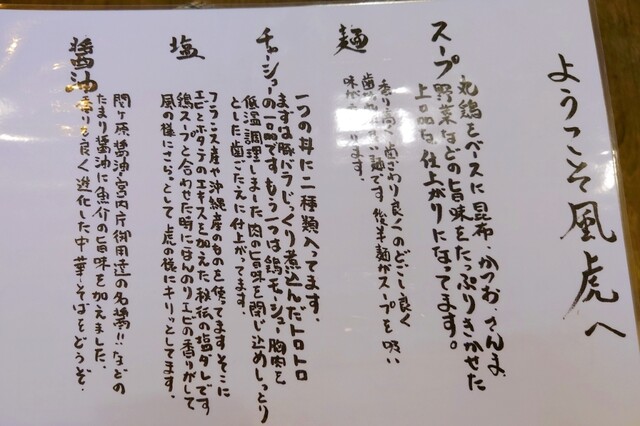 ようこそ風虎へ
スープ
丸鶏をベースに昆布、かつお、さんま、
野菜などの旨味をたっぷりきかせた
上品な仕上がりになってます。
麺
香り高く歯ざわり良くのどごし良く
歯ごたえ良い麺です 後半麺がスープを吸い
味が
ます。
チャーシュー
一つの丼に二種類入ってます。
まずは豚バラじっくり煮込んだトロトロ
の一品です もう一つは鶏チャーシュー胸肉を
低温調理しました 肉の旨味を閉じ込めしっとり
とした歯ごたえに仕上がってます。
塩
フランス産や沖縄産のものを使ってます そこに
エビとホタテのエキスを加えた秘伝の塩ダレです
鶏スープと合わせた時にほんのりエビの香りがして
風の様にさらっとして虎の様にキリッとしてます。
醤油
関ヶ原醤油・宮内庁御用達の名物!!などの
たまり醤油に魚介の旨味を加えました。
香り良く進化した中華そばをどうぞ。